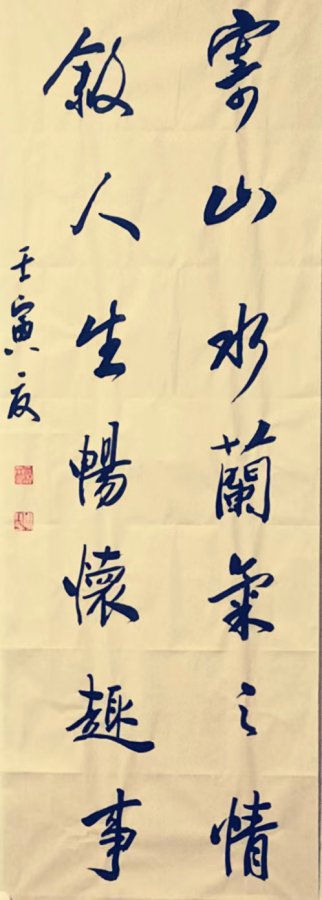 寄山水蘭氣之情
敘人生暢懷趣事
壬寅夏